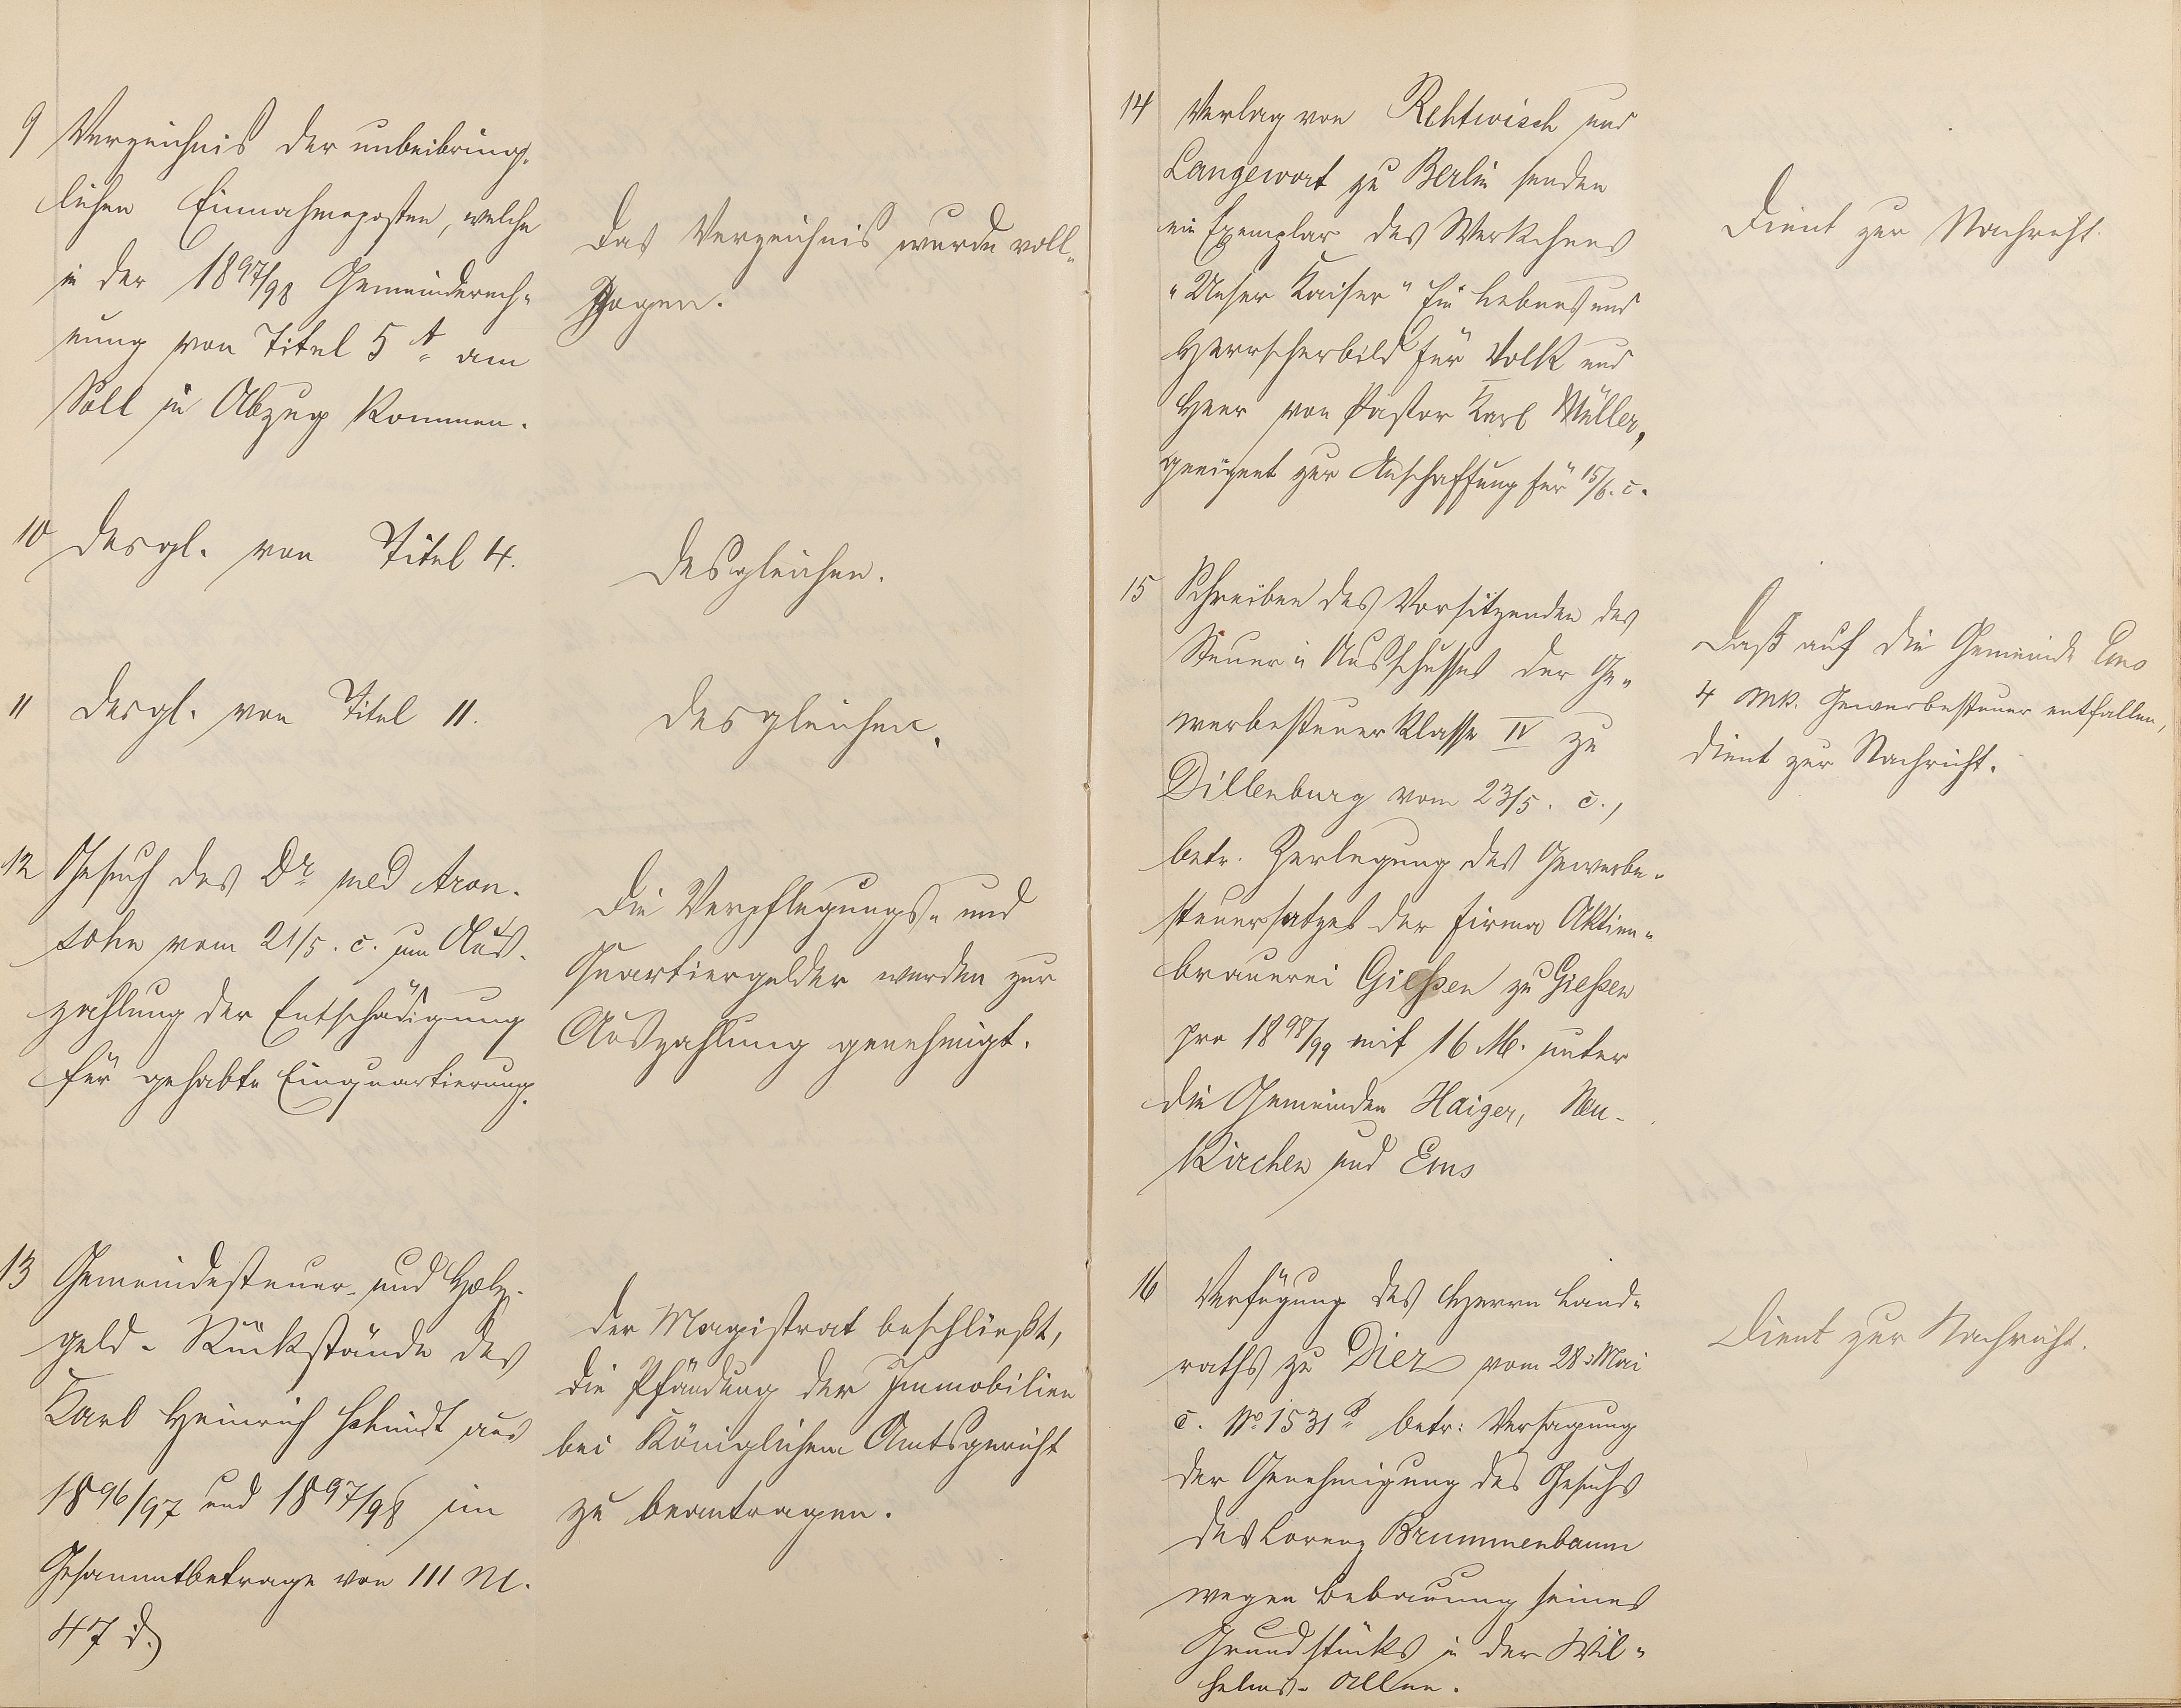 9 Verzeichnis der unbeibring-
lichen Einnahmeposten, welche
in der 1897/98 Gemeinderech-
nung von Titel 5 A am
Soll in Abzug kommen.
Das Verzeichnis wurde voll-
zogen.
10 desgl. von Titel 4.
Desgleichen.
11 desgl. von Titel 11.
desgleichen.
12 Gesuch des Dr med Aron-
sohn vom 21/5. c. um Aus-
zahlung der Entschädigung
für gehabte Einquartierung.
Die Verpflegungs- und
Quartiergelder werden zur
Auszahlung genehmigt.
13 Gemeindesteuer- und Holz-
geld-Rückstände des
Karl Heinrich aus
1896/97 und 1897/98 im
Gesammtbetrage von 111 M.
47 d.
der Magistrat beschließt,
die Pfändung der Immobilien
bei Königlichem Amtsgericht
zu beantragen.
14 Verlag von Rehtwisch und
Langewort zu Berlin senden
ein Exemplar des Werkchens
"Unser Kaiser" Ein Lebens und
Herrscherbild für Volk und
Heer von Pastor Karl Müller,
geeignet zur Anschaffung für 15/6. c.
Dient zur Nachricht.
15 Schreiben des Vorsitzenden des
Steuer-Ausschusses der Ge-
werbesteuerklasse IV zu
Dillenburg vom 23/5. c.,
betr. Zerlegung des Gewerbe-
steuersatzes der Firma Aktien-
brauerei Gießen zu Gießen
pro 1898/99 mit 16 M. unter
die Gemeinden Haiger, Neu-
kirchen und Ems
Daß auf die Gemeinde Ems
4 Mk. Gewerbesteuer entfallen,
dient zur Nachricht.
16 Verfügung des Herrn Land-
raths zu Diez vom 28. Mai
c. No. 1531 B betr: Versagung
der Genehmigung des Gesuchs
des Lorenz Brummenbaum
wegen Bebauung seines
Grundstücks in der Wil-
helms-Allee.
Dient zur Nachricht.